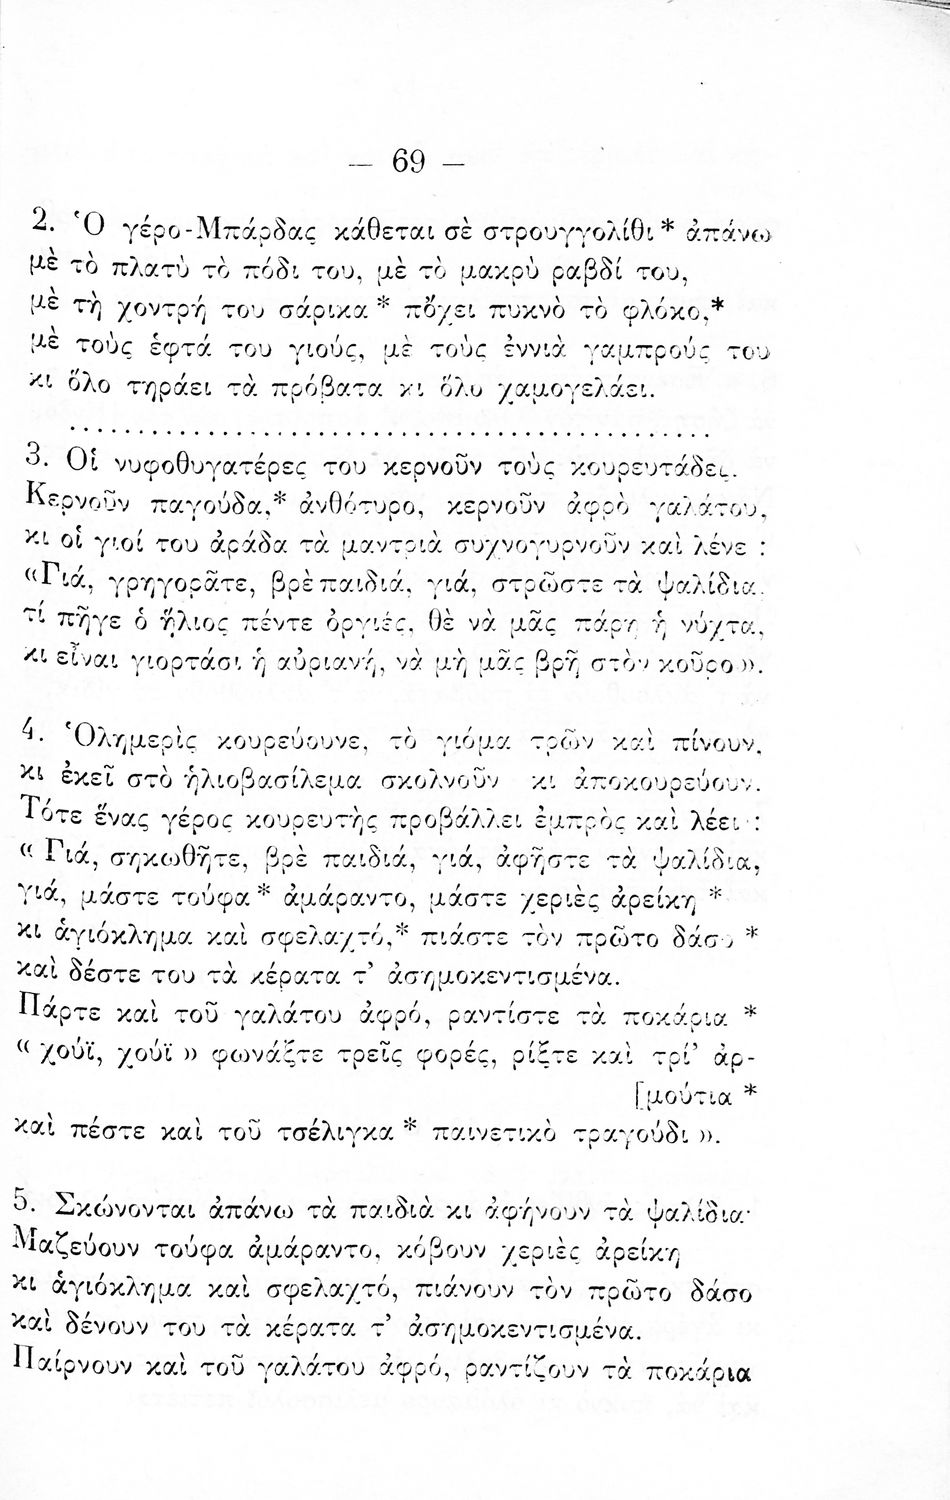 — 69 —
2. Ὁ γέρο-Μπάρδας κάθεται σὲ στρουγγολίθι * ἀπάνω
μὲ τὸ πλατὺ τὸ πόδι του, μὲ τὸ μακρὺ ραβδί του,
μὲ τὴ χοντρή του σάρικα * πὄχει πυκνὸ τὸ φλόκο,*
μὲ τοὺς ἑφτά του γιούς, μὲ τοὺς ἐννιὰ γαμπρούς του
κι ὅλο τηράει τὰ πρόβατα κι ὅλο χαμογελάει.
. . . . . . . . . . . . . . . . . . . . . . . . . . . . . . . . . . . . . . . . . .
3. Οἱ νυφοθυγατέρες του κερνοῦν τοὺς κουρευτάδες.
Κερνοῦν παγούδα,* ἀνθότυρο, κερνοῦν ἀφρὸ γαλάτου,
κι οἱ γιοί του ἀράδα τὰ μαντριὰ συχνογυρνοῦν καὶ λένε :
«Γιά, γρηγορᾶτε, βρὲ παιδιά, γιά, στρῶστε τὰ ψαλίδια.
τί πῆγε ὁ ἥλιος πέντε ὀργιές, θὲ νὰ μᾶς πάρη ἡ νύχτα,
κι εἶναι γιορτάσι ἡ αὐριανή, νὰ μὴ μᾶς βρῆ στὸν κοῦρο».
4. Ὁλημερὶς κουρεύουνε, τὸ γιόμα τρῶν καὶ πίνουν,
κι ἐκεῖ στὸ ἡλιοβασίλεμα σκολνοῦν κι ἀποκουρεύουν.
Τότε ἕνας γέρος κουρευτὴς προβάλλει ἐμπρὸς καὶ λέει :
« Γιά, σηκωθῆτε, βρὲ παιδιά, γιά, ἀφῆστε τὰ ψαλίδια,
γιά, μάστε τούφα * ἀμάραντο, μάστε χεριὲς ἀρείκη *
κι ἁγιόκλημα καὶ σφελαχτό,* πιάστε τὸν πρῶτο δάσο *
καὶ δέστε του τὰ κέρατα τ’ ἀσημοκεντισμένα.
Πάρτε καὶ τοῦ γαλάτου ἀφρό, ραντίστε τὰ ποκάρια *
« χούϊ, χούϊ » φωνάξτε τρεῖς φορές, ρίξτε καὶ τρί’ ἀρ-
[μούτια *
καὶ πέστε καὶ τοῦ τσέλιγκα * παινετικὸ τραγούδι ».
5. Σκώνονται ἀπάνω τὰ παιδιὰ κι ἀφήνουν τὰ ψαλίδια·
Μαζεύουν τούφα ἀμάραντο, κόβουν χεριὲς ἀρείκη
κι ἁγιόκλημα καὶ σφελαχτό, πιάνουν τὸν πρῶτο δάσο
καὶ δένουν του τὰ κέρατα τ’ ἀσημοκεντισμένα.
Παίρνουν καὶ τοῦ γαλάτου ἀφρό, ραντίζουν τὰ ποκάρια